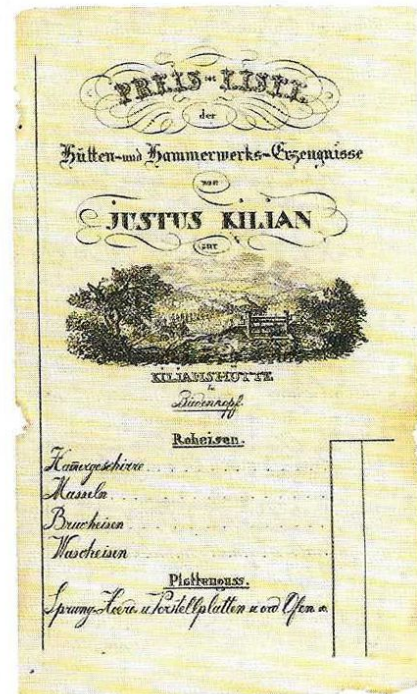 PREIS-LISTE
der
Hütten- und Hammerwerks-Erzeugnisse
von
JUSTUS KILIAN
zur
KILIANSHÜTTE
b
Biedenkopf.
Roheisen.
Ham̅ergeschirre
Masseln
Brucheisen
Wascheisen
Plattenguss.
Sprung-Heerde u Vorstellplatten u ord Ofen